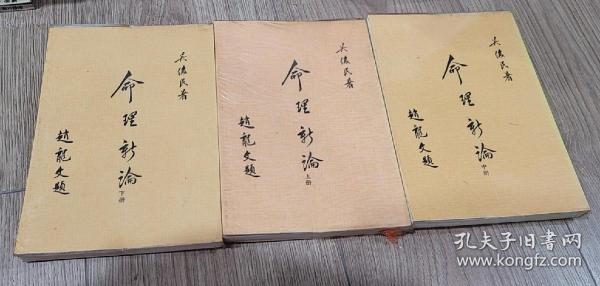 吴俊民著
命理新論
下册
趙龍文題
吴俊民著
命理新論
上册
趙龍文題
吴俊民著
命理新論
中册
趙龍文題
孔夫子旧书网
www.kongfz.com